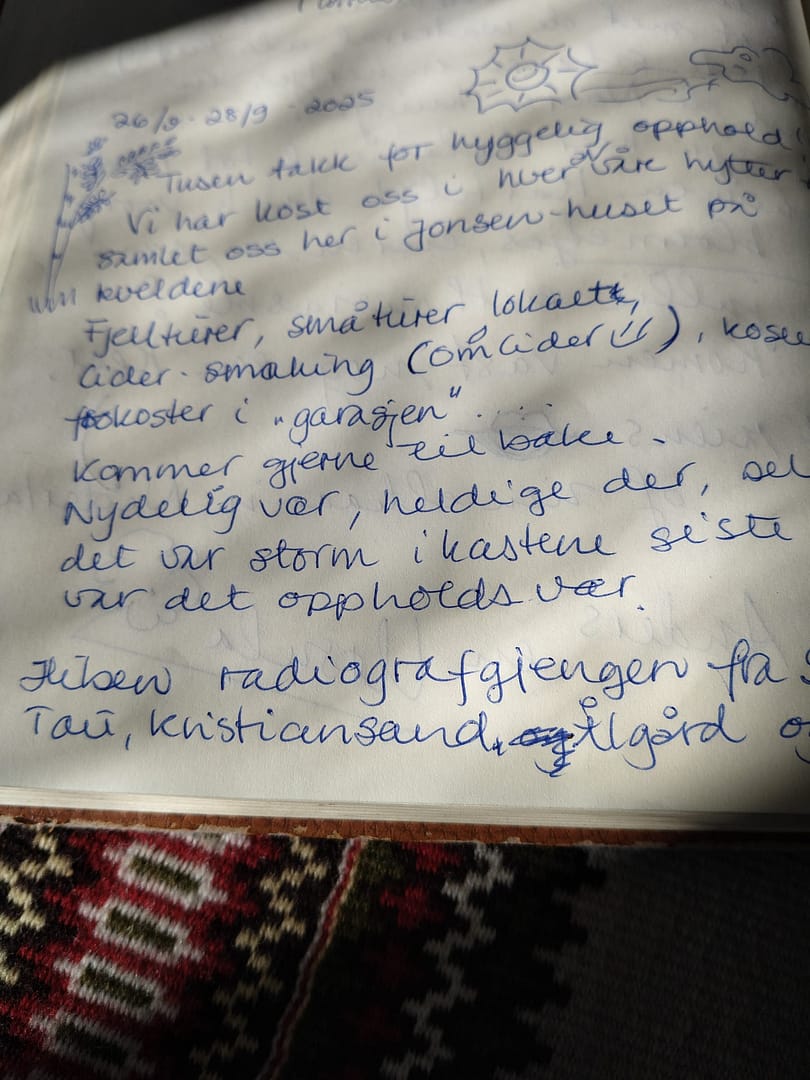 26/9 - 28/9 - 2025
Tusen takk for hyggelig opphold!
Vi har kost oss i hver av våre hytter
samlet oss her i Jonsen-huset på
kveldene
Fjellturer, småturer lokalt,
Cider-smaking (omcider), kose
frokoster i "garasjen"...
Kommer gjerne tilbake.
Nydelig vær, heldige der, sel
det var storm i kastene siste
var det oppholdsvær.
Hilsen radiografgjengen fra S
Tau, Kristiansand, Ålgård og